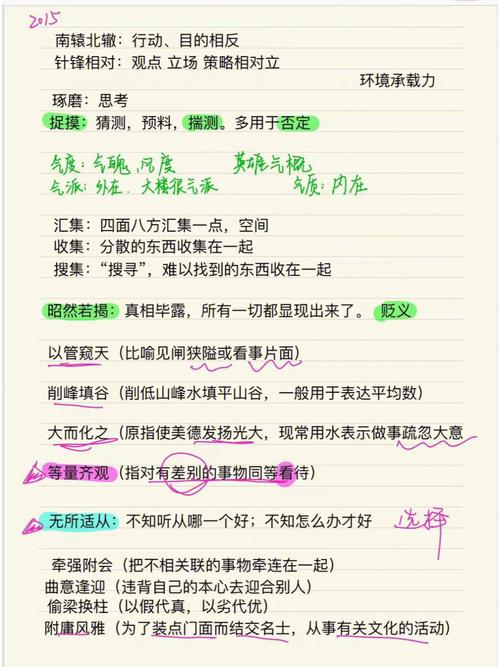 2015
南辕北辙：行动、目的相反
针锋相对：观点 立场 策略相对立
环境承载力
琢磨：思考
捉摸：猜测，预料，揣测。多用于否定
气度：气魄，风度 英雄气概
气派：外在，大楼很气派 气质：内在
汇集：四面八方汇集一点，空间
收集：分散的东西收集在一起
搜集：“搜寻”，难以找到的东西收在一起
昭然若揭：真相毕露，所有一切都显现出来了。 贬义
以管窥天（比喻见闸狭隘或看事片面）
削峰填谷（削低山峰水填平山谷，一般用于表达平均数）
大而化之（原指使美德发扬光大，现常用水表示做事疏忽大意
等量齐观（指对有差别的事物同等看待）
无所适从：不知听从哪一个好；不知怎么办才好 选择
牵强附会（把不相关联的事物牵连在一起）
曲意逢迎（违背自己的本心去迎合别人）
偷梁换柱（以假代真，以劣代优）
附庸风雅（为了装点门面而结交名士，从事有关文化的活动）